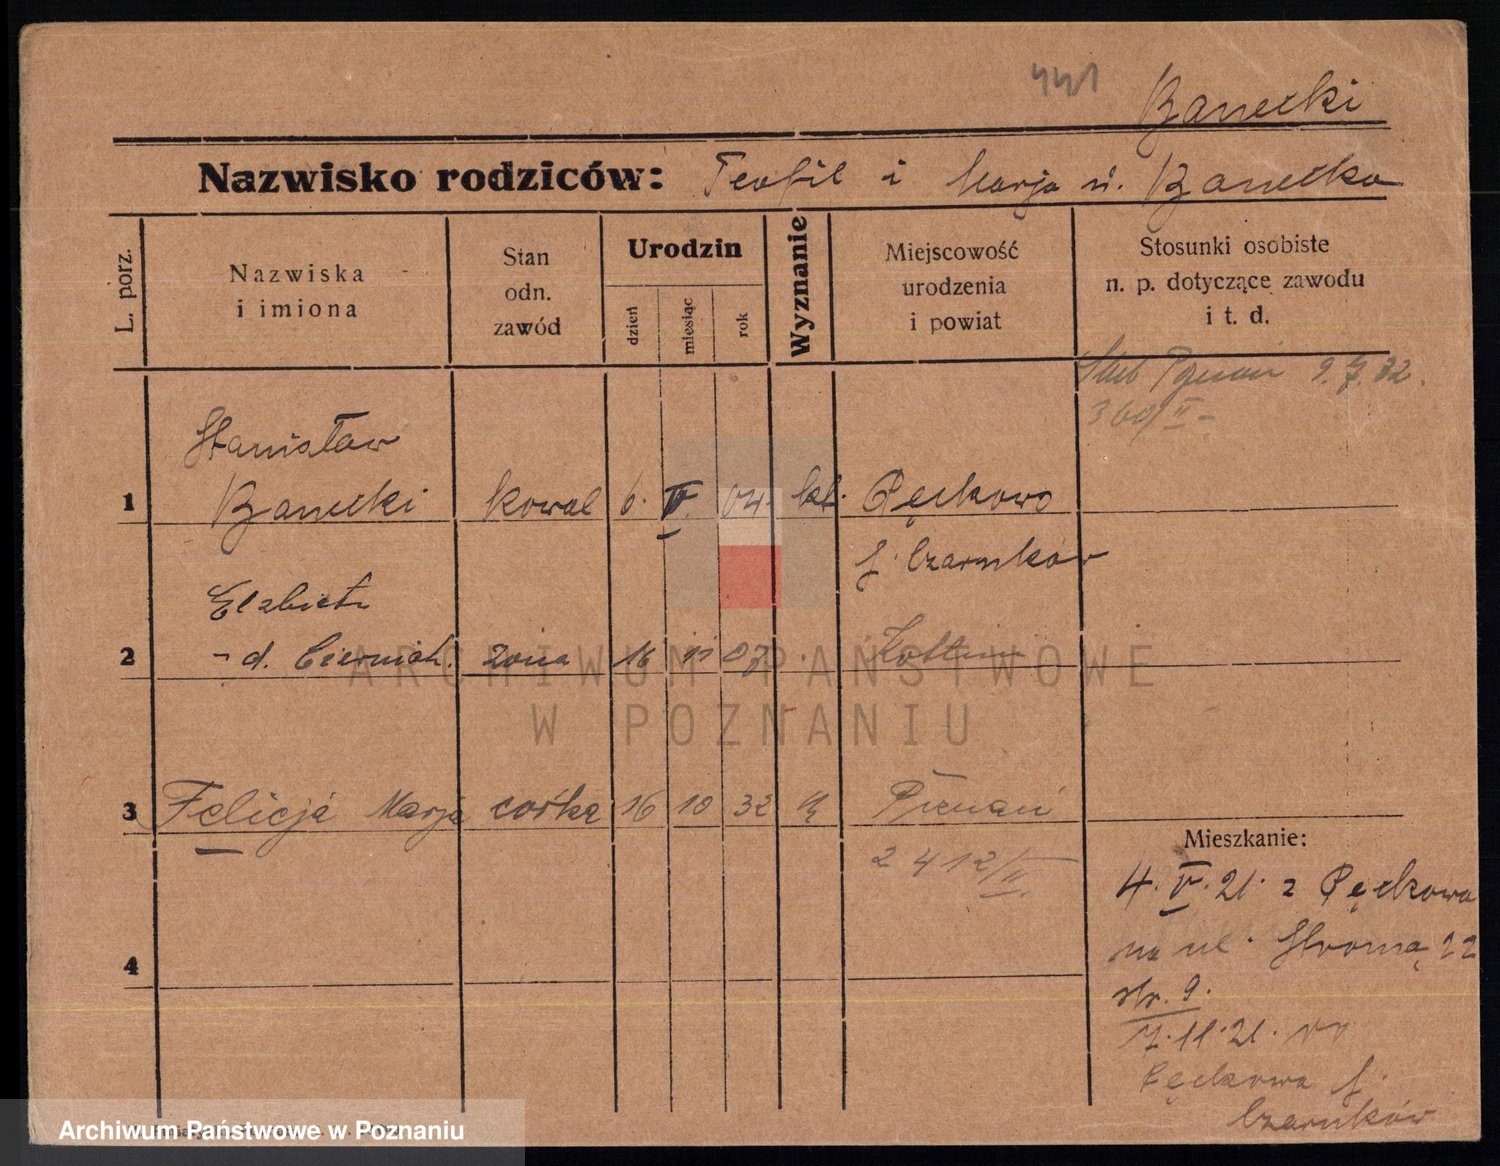 441
Banecki
Nazwisko rodziców: Teofil i Marja u. Banecka
L. porz.
Nazwiska
i imiona
Stan
odn.
zawód
Urodzin
dzień
miesiąc
rok
Wyznanie
Miejscowość
urodzenia
i powiat
Stosunki osobiste
n. p. dotyczące zawodu
i t. d.
Ślub Poznań 9.7.32.
369/II-
Stanisław
1 Banecki kowal 6. V. 04. kat. Pęckowo
p. Czarnków
Elżbieta
2 -d. Cierniak. żona 16 11 07 Kottim
3 Felicja Marja córka 16 10 32 Poznań
2412/II.
Mieszkanie:
4. V. 21. z Pęckowa
na ul. Stromą 22
str. 9.
7.11.21.
Pęckowa p.
Czarnków
4
ARCHIWUM PAŃSTWOWE
W POZNANIU
Archiwum Państwowe w Poznaniu